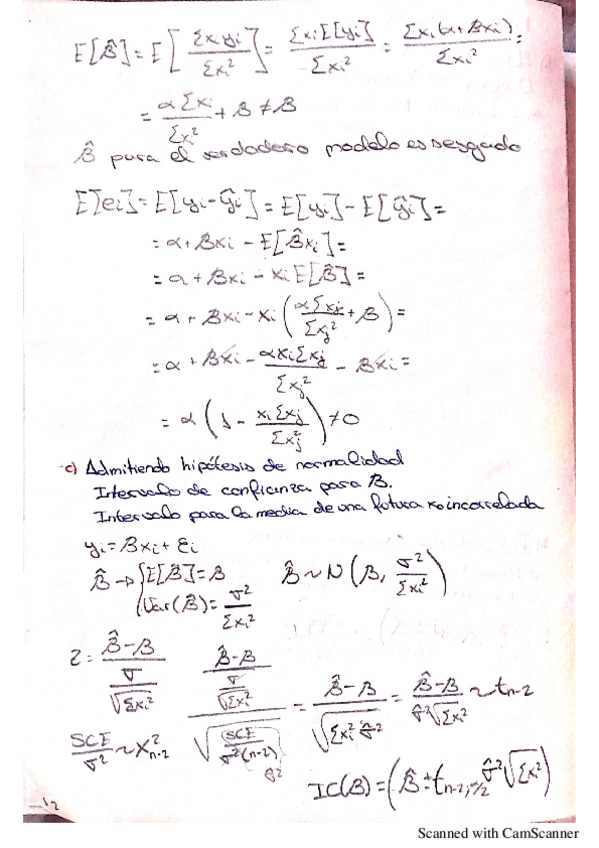 E[β̂] = E[Σxiyi / Σxi²] = ΣxiE[yi] / Σxi² = Σxi(α+βxi) / Σxi² =
= αΣxi / Σxi² + β ≠ β
β̂ para el verdadero modelo es sesgado
E[ei] = E[yi-ŷi] = E[yi] - E[ŷi] =
= α+βxi - E[β̂xi] =
= α + βxi - xiE[β̂] =
= α + βxi - xi(αΣxj / Σxj² + β) =
= α + βxi - αxiΣxj / Σxj² - βxi =
= α(1 - xiΣxj / Σxj²) ≠ 0
c) Admitiendo hipótesis de normalidad
Intervalo de confianza para β.
Intervalo para la media de una futura xo incorrelada
yi = βxi + εi
β̂ → { E[β̂] = β
Var(β̂) = σ² / Σxi²
β̂ ~ N(β, σ² / Σxi²)
Z = (β̂-β) / (σ / √Σxi²)
SCE / σ² ~ X²n-2
((β̂-β) / (σ / √Σxi²)) / √(SCE / σ²(n-2)) = (β̂-β) / √(Σxi² σ̂²) = (β̂-β) / σ̂²√Σxi² ~ tn-2
σ̂²
IC(β) = (β̂ ± tn-2; α/2 σ̂²√Σxi²)
Scanned with CamScanner